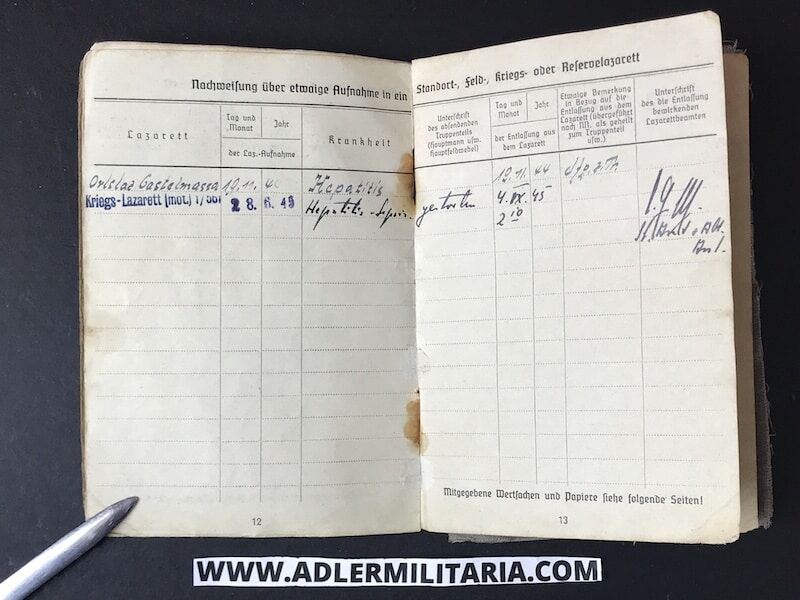 Nachweisung über etwaige Aufnahme in ein
Lazarett
Tag und Monat
Jahr
der Laz.-Aufnahme
Krankheit
19.11.
Hepatitis
Kriegs-Lazarett (mot.)
28. 6. 45
Hepatitis - Sepsis
12
Standort-, Feld-, Kriegs- oder Reservelazarett
Unterschrift
des absendenden
Truppenteils
(Hauptmann usw.
Hauptfeldwebel)
Tag und
Monat
Jahr
der Entlassung aus
dem Lazarett
Etwaige Bemerkung
in Bezug auf die
Entlassung aus dem
Lazarett (übergeführt
nach NN, als geheilt
zum Truppenteil
usw.)
Unterschrift
des die Entlassung
bewirkenden
Lazarettbeamten
19.11. 44
gestorben
45
2 10
Mitgegebene Wertsachen und Papiere siehe folgende Seiten!
13
WWW.ADLERMILITARIA.COM